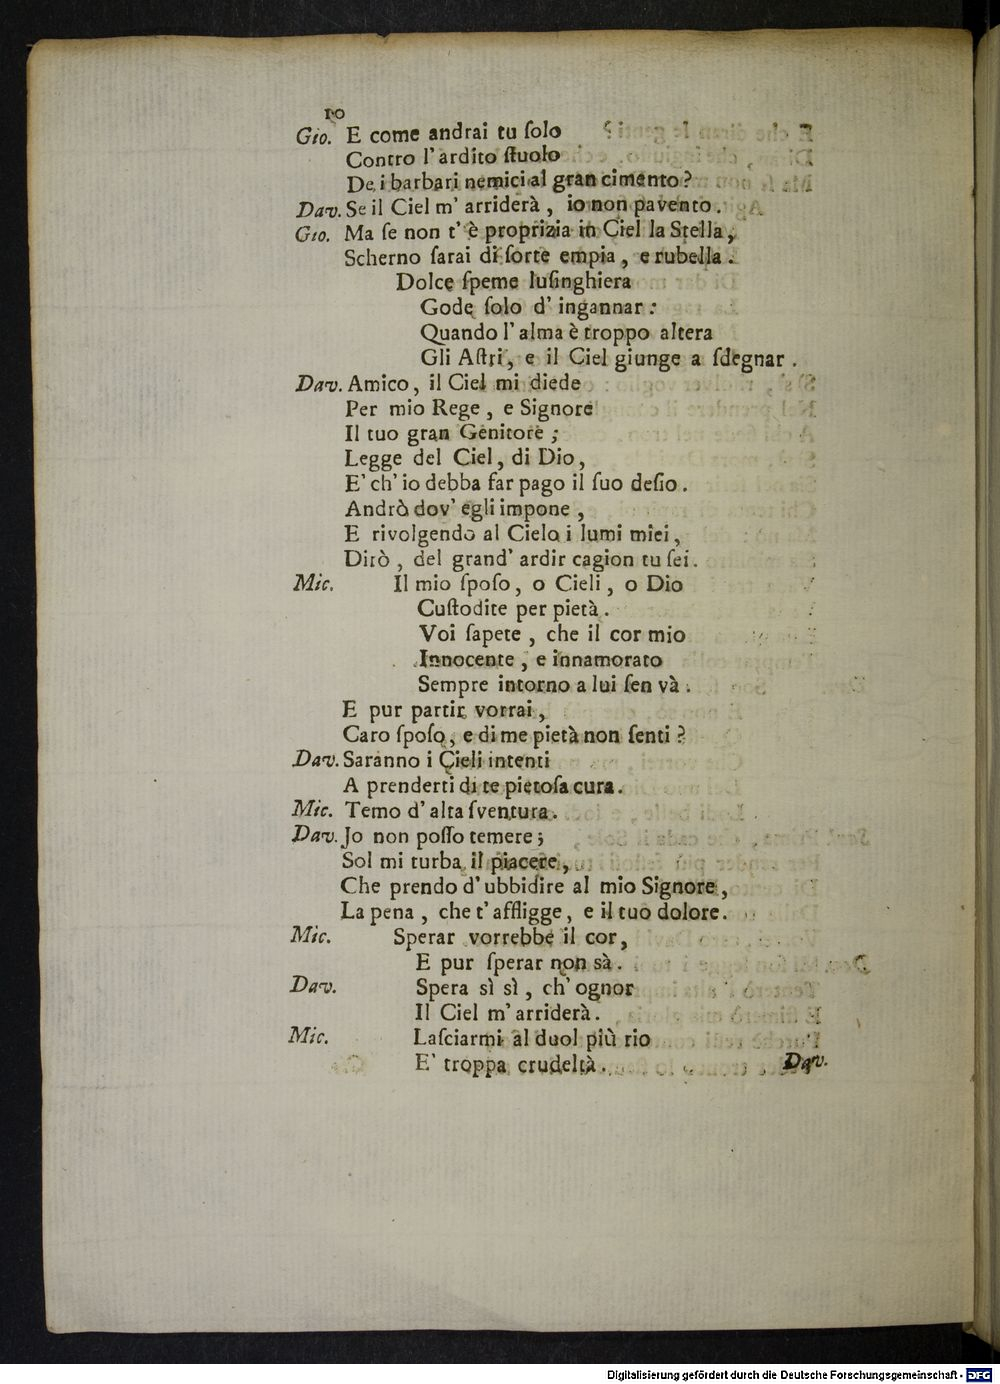 10
Gio. E come andrai tu ſolo
Contro l' ardito ſtuolo
De i barbari nemici al gran cimento?
Dav. Se il Ciel m' arriderà, io non pavento.
Gio. Ma ſe non t' è proprizia in Ciel la Stella,
Scherno ſarai di ſorte empia, e rubella.
Dolce ſpeme luſinghiera
Gode ſolo d' ingannar:
Quando l' alma è troppo altera
Gli Aſtri, e il Ciel giunge a ſdegnar.
Dav. Amico, il Ciel mi diede
Per mio Rege, e Signore
Il tuo gran Genitore;
Legge del Ciel, di Dio,
E' ch' io debba far pago il ſuo deſio.
Andrò dov' egli impone,
E rivolgendo al Cielo i lumi miei,
Dirò, del grand' ardir cagion tu ſei.
Mic. Il mio ſpoſo, o Cieli, o Dio
Cuſtodite per pietà.
Voi ſapete, che il cor mio
Innocente, e innamorato
Sempre intorno a lui ſen và.
E pur partir vorrai,
Caro ſpoſo, e di me pietà non ſenti?
Dav. Saranno i Cieli intenti
A prenderti di te pietoſa cura.
Mic. Temo d' alta ſventura.
Dav. Jo non poſſo temere;
Sol mi turba il piacere,
Che prendo d' ubbidire al mio Signore,
La pena, che t' affligge, e il tuo dolore.
Mic. Sperar vorrebbe il cor,
E pur ſperar non sà.
Dav. Spera sì sì, ch' ognor
Il Ciel m' arriderà.
Mic. Laſciarmi al duol più rio
E' troppa crudeltà.
Dav.
Digitalisierung gefördert durch die Deutsche Forschungsgemeinschaft - DFG